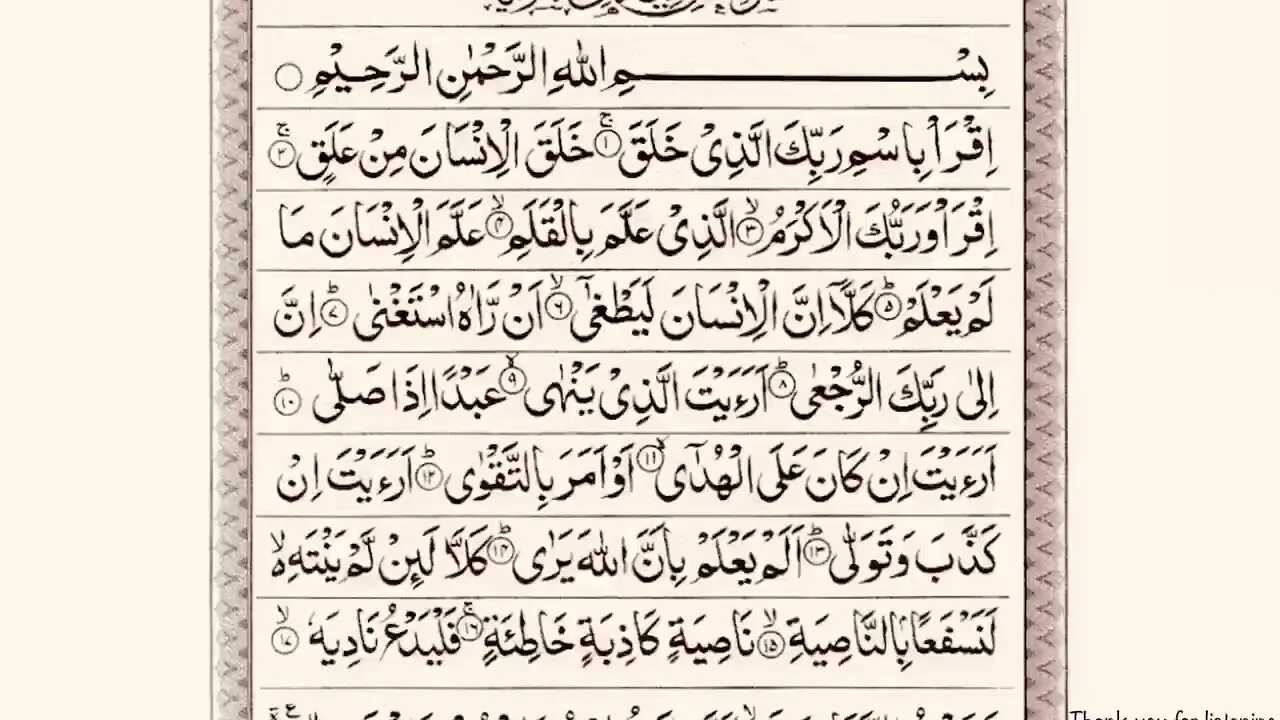 بِسْـــــــمِ اللهِ الرَّحْمٰنِ الرَّحِيْمِ ○
اِقْرَاْ بِاسْمِ رَبِّكَ الَّذِىْ خَلَقَ ۚ﴿۱﴾ خَلَقَ الْاِنْسَانَ مِنْ عَلَقٍ ۚ﴿۲﴾
اِقْرَاْ وَرَبُّكَ الْاَكْرَمُ ۙ﴿۳﴾ الَّذِىْ عَلَّمَ بِالْقَلَمِ ۙ﴿۴﴾ عَلَّمَ الْاِنْسَانَ مَا
لَمْ يَعْلَمْ ؕ﴿۵﴾ كَلَّاۤ اِنَّ الْاِنْسَانَ لَيَطْغٰٓى ۙ﴿۶﴾ اَنْ رَّاٰهُ اسْتَغْنٰى ؕ﴿۷﴾ اِنَّ
اِلٰى رَبِّكَ الرُّجْعٰى ؕ﴿۸﴾ اَرَءَيْتَ الَّذِىْ يَنْهٰى ۙ﴿۹﴾ عَبْدًا اِذَا صَلّٰى ؕ﴿۱۰﴾
اَرَءَيْتَ اِنْ كَانَ عَلَى الْهُدٰٓى ۙ﴿۱۱﴾ اَوْ اَمَرَ بِالتَّقْوٰى ؕ﴿۱۲﴾ اَرَءَيْتَ اِنْ
كَذَّبَ وَتَوَلّٰى ؕ﴿۱۳﴾ اَلَمْ يَعْلَمْ بِاَنَّ اللهَ يَرٰى ؕ﴿۱۴﴾ كَلَّا لَىِٕنْ لَّمْ يَنْتَهِ ۙ
لَنَسْفَعًا بِالنَّاصِيَةِ ۙ﴿۱۵﴾ نَاصِيَةٍ كَاذِبَةٍ خَاطِئَةٍ ۚ﴿۱۶﴾ فَلْيَدْعُ نَادِيَهٗ ۙ﴿۱۷﴾
Thank you for listening